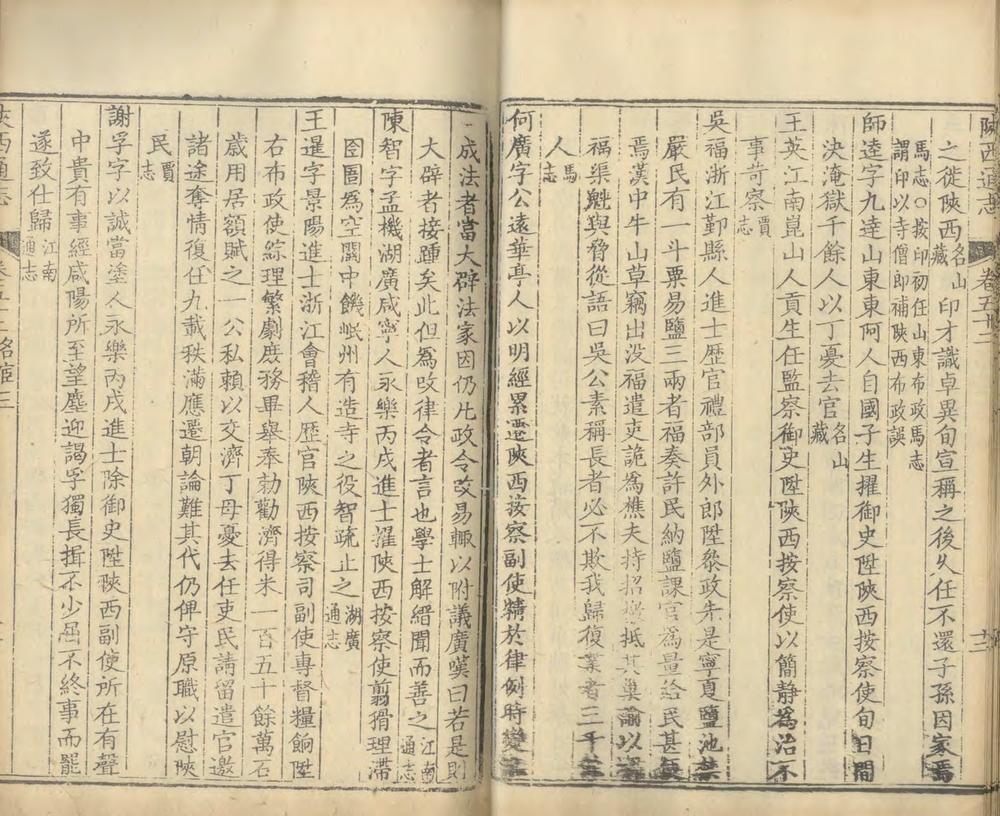 陝西通志　卷五十二　十三
之徙陝西名山藏印才識卓異旬宣稱之後久任不還子孫因家焉
馬志○按印初任山東布政馬志
謂印以寺僧即補陝西布政誤
師逵字九逵山東東阿人自國子生擢御史陞陝西按察使旬日間
決淹獄千餘人以丁憂去官名山藏
王英江南崑山人貢生任監察御史陞陝西按察使以簡靜為治不
事苛察賈志
吳福浙江鄞縣人進士歷官禮部員外郎陞叅政先是寧夏鹽池禁
嚴民有一斗粟易鹽三兩者福奏許民納鹽課官為量給民甚便
焉漢中牛山草竊出没福遣吏詭為樵夫持招檄抵其巢諭以
福渠魁與脅從語曰吳公素稱長者必不欺我歸復業者三千
人馬志
何廣字公遠華亭人以明經累遷陝西按察副使精於律例時變
成法者當大辟法家因仍比政令改易輒以附議廣嘆曰若是則
大辟者接踵矣此但為改律令者言也學士解縉聞而善之江南通志
陳智字孟機湖廣咸寧人永樂丙戌進士擢陝西按察使翦猾理滯
囹圄為空關中饑岷州有造寺之役智疏止之湖廣通志
王暹字景陽進士浙江會稽人歷官陝西按察司副使專督糧餉陞
右布政使綜理繁劇庶務畢舉奉勅勸濟得米一百五十餘萬石
歲用居額賦之一公私賴以交濟丁母憂去任吏民請留遣官邀
諸途奪情復任九載秩滿應遷朝論難其代仍俾守原職以慰陝
民賈志
謝孚字以誠當塗人永樂丙戌進士除御史陞陝西副使所在有聲
中貴有事經咸陽所至望塵迎謁孚獨長揖不少屈不終事而罷
遂致仕歸江南通志
陝西通志　卷五十二名宦三